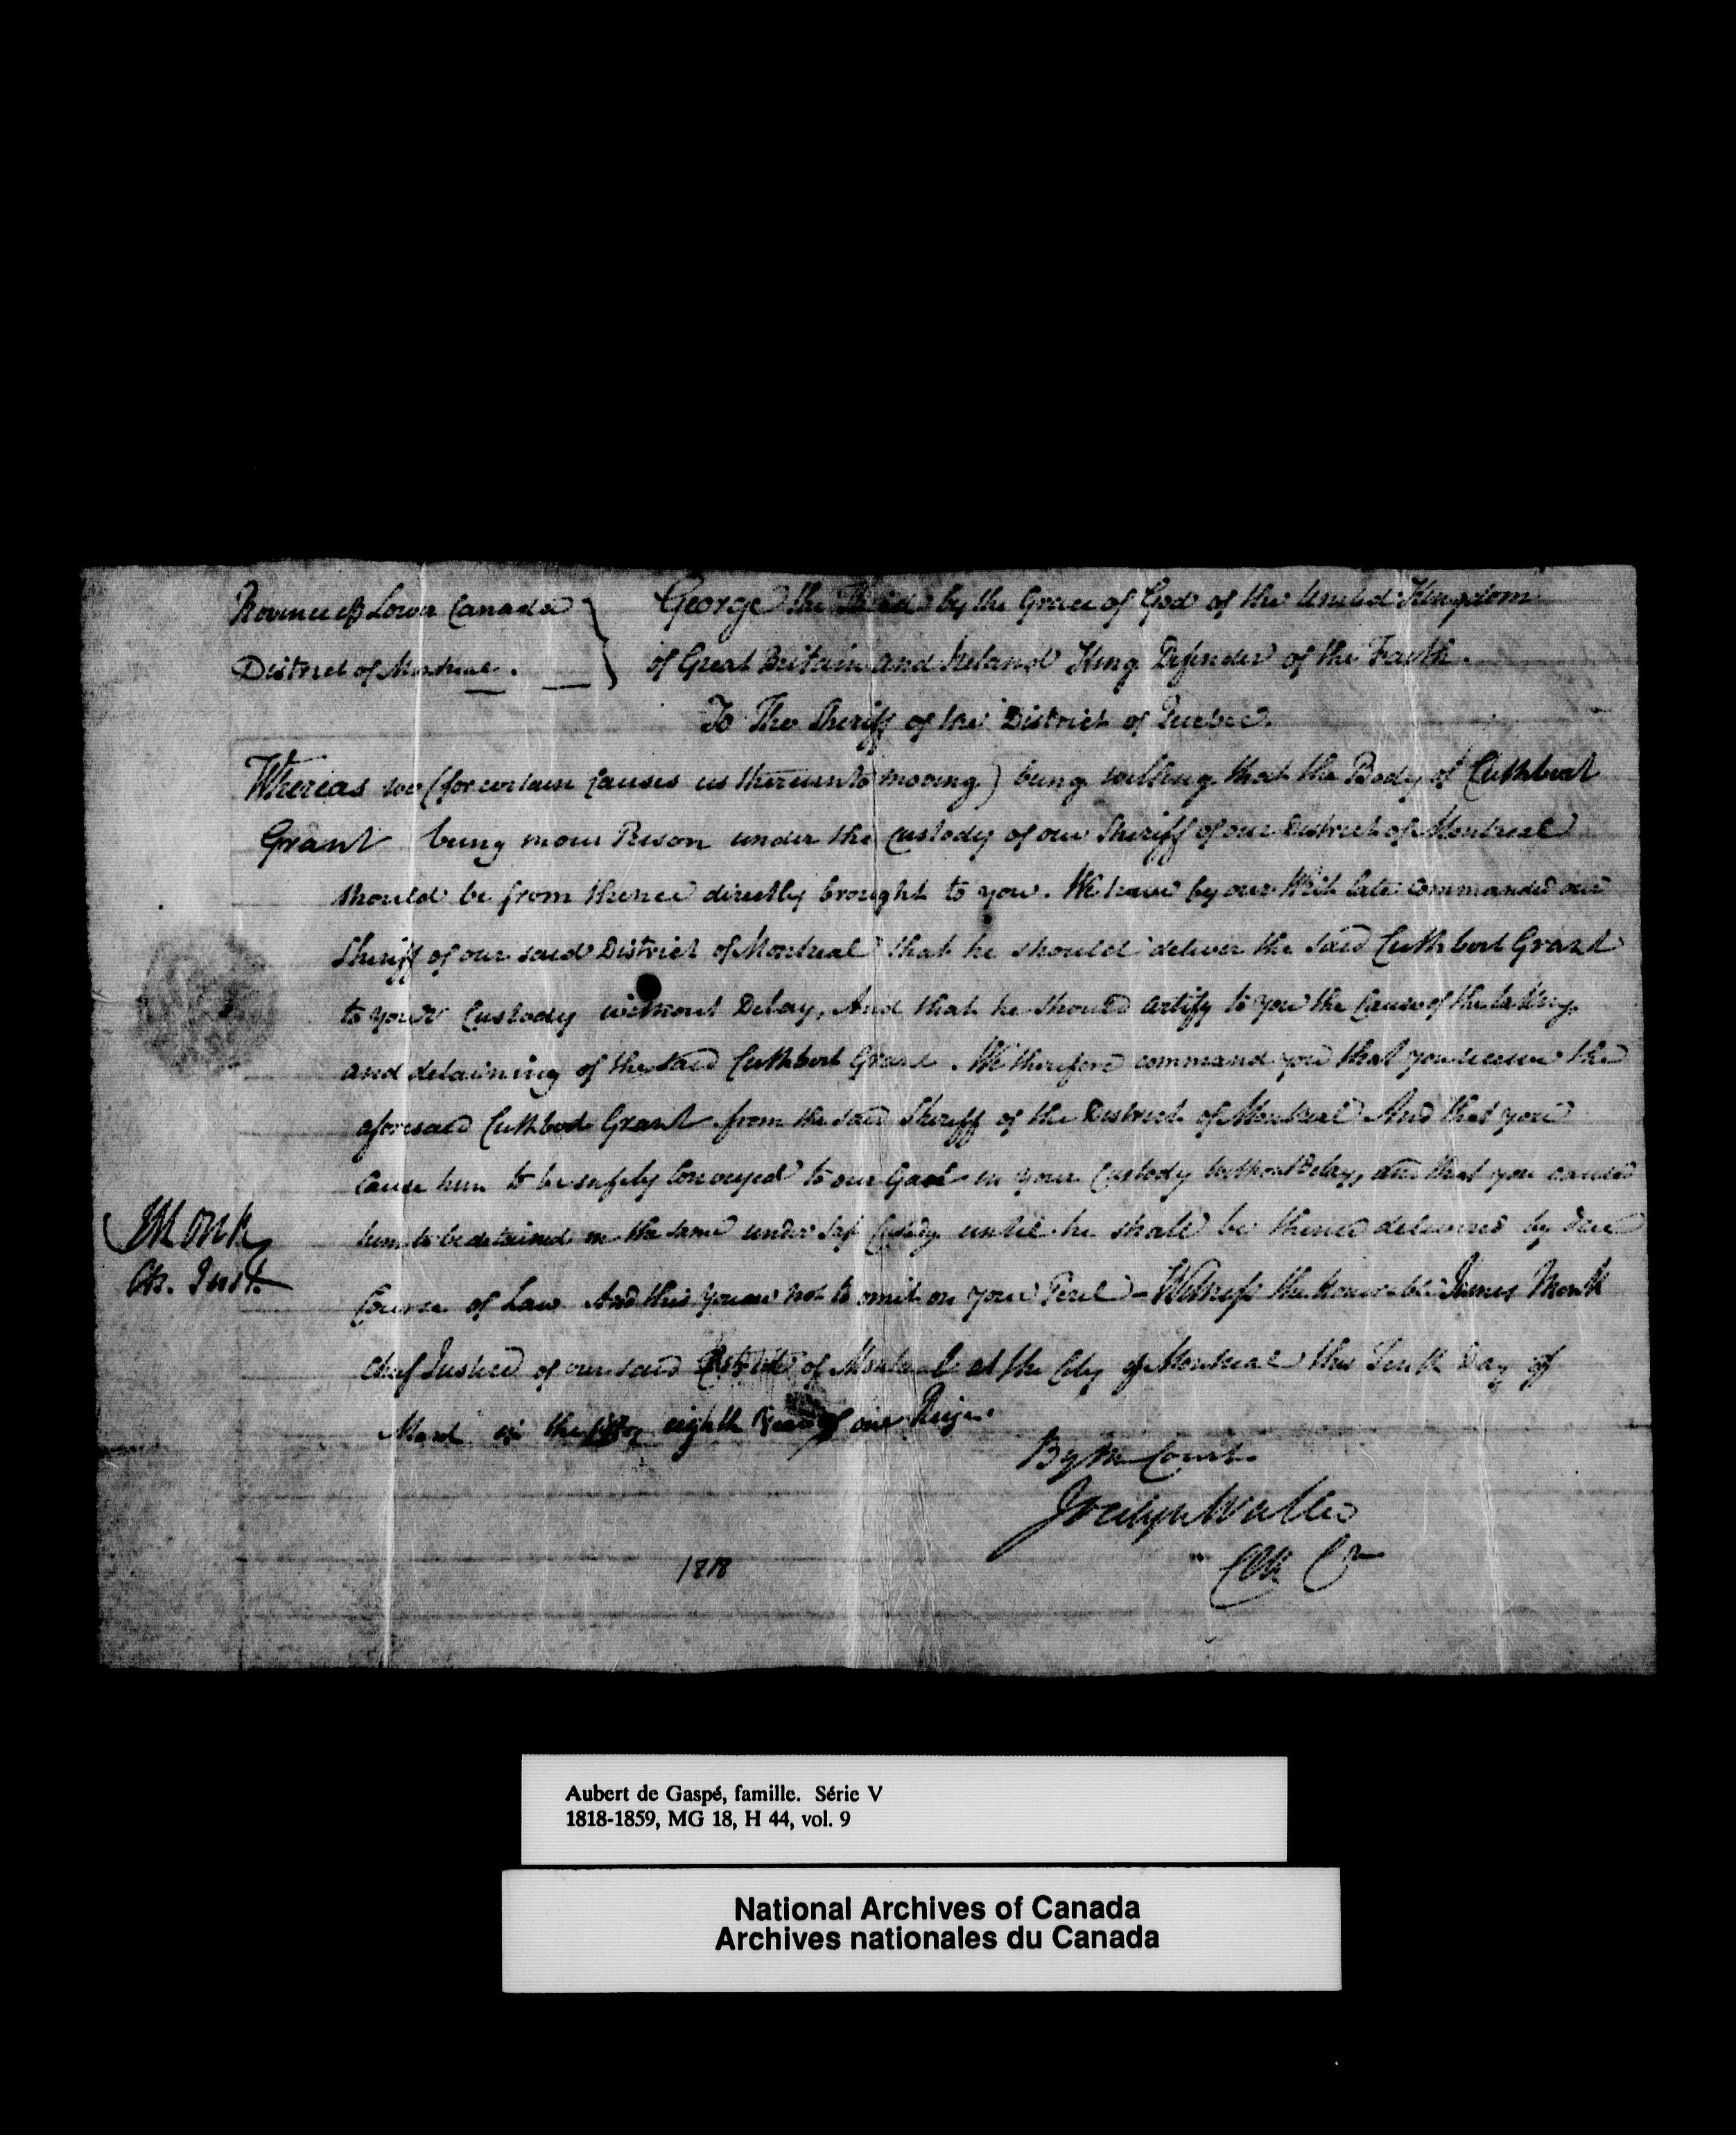 Province of Lower Canada }
District of Montreal. }
George the Third by the Grace of God of the United Kingdom
of Great Britain and Ireland King Defender of the Faith.
To The Sheriff of the District of Quebec.
Whereas we (for certain Causes us thereunto moving) being willing that the Body of Cuthbert
Grant being in our Prison under the Custody of our Sheriff of our District of Montreal
should be from thence directly brought to you. We have by our Writ late commanded our
Sheriff of our said District of Montreal that he should deliver the said Cuthbert Grant
to your Custody without Delay, And that he should certify to you the Cause of the taking
and detaining of the said Cuthbert Grant. We therefore command you that you receive the
aforesaid Cuthbert Grant from the said Sheriff of the District of Montreal And that you
Cause him to be safely Conveyed to our Gaol in your Custody without Delay, and that you cause
him to be detained in the same under safe Custody until he shall be thence delivered by due
Course of Law And this you are not to omit on your Peril - Witness the honorable James Monk
Chief Justice of our said District of Montreal at the City of Montreal this Tenth Day of
March in the fifty eighth Year of our Reign.
JMonk
Ch. Just.
By the Court
Jocelyn Waller
1818
Aubert de Gaspé, famille. Série V
1818-1859, MG 18, H 44, vol. 9
National Archives of Canada
Archives nationales du Canada